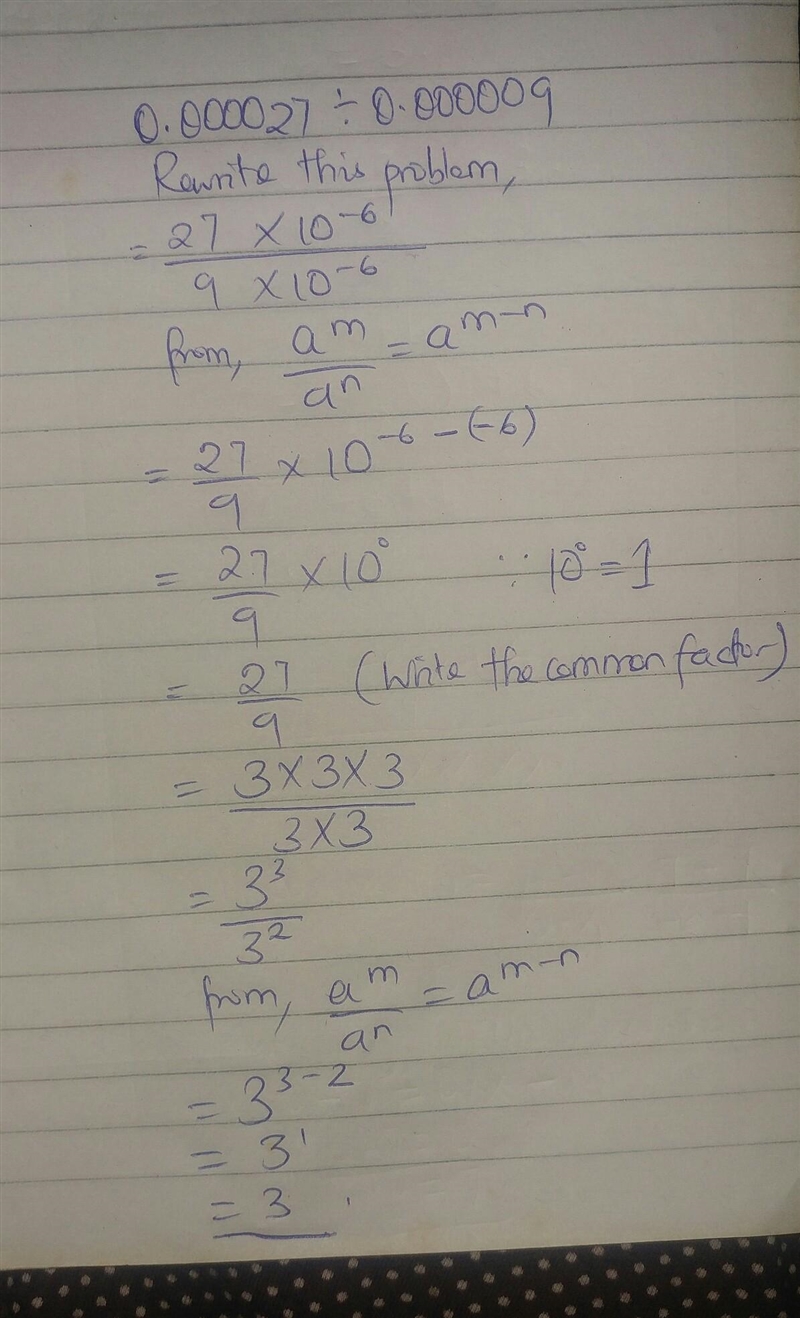 0.000027 ÷ 0.000009
Rewrite this problem,
= 27 × 10⁻⁶ / 9 × 10⁻⁶
from, aᵐ / aⁿ = aᵐ⁻ⁿ
= 27/9 × 10⁻⁶ ⁻ ⁽⁻⁶⁾
= 27/9 × 10⁰ ∵ 10⁰ = 1
= 27/9 (Write the common factor)
= 3×3×3 / 3×3
= 3³ / 3²
from, aᵐ / aⁿ = aᵐ⁻ⁿ
= 3³⁻²
= 3¹
= 3